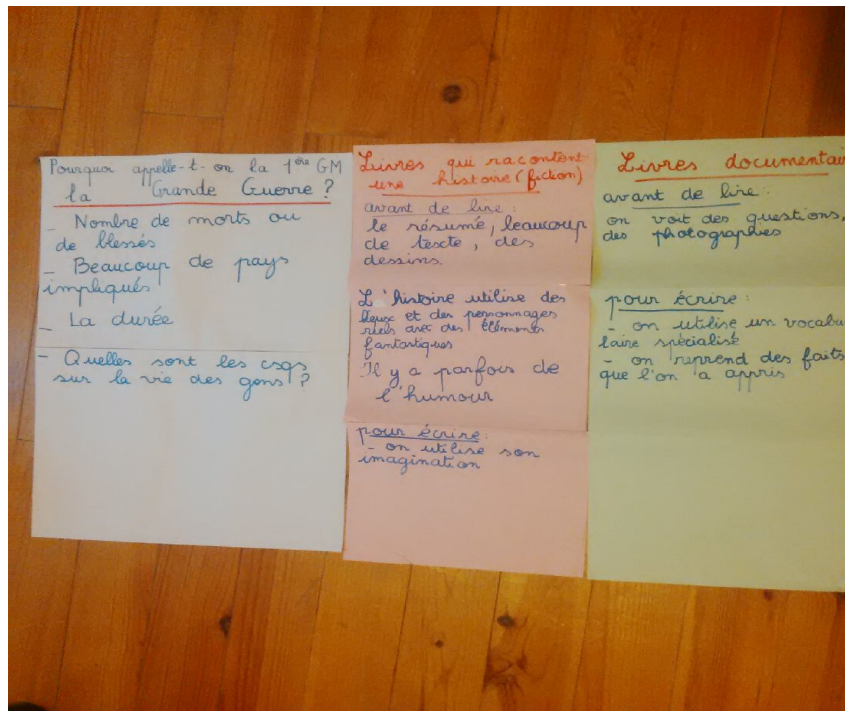 Pourquoi appelle-t-on la 1ère GM
la Grande Guerre ?
_ Nombre de morts ou
de blessés
_ Beaucoup de pays
impliqués
_ La durée
- Quelles sont les csqs
sur la vie des gens ?
Livres qui racontent
une histoire (fiction)
avant de lire :
le résumé, beaucoup
de texte, des
dessins.
L'histoire utilise des
lieux et des personnages
réels avec des éléments
fantastiques
Il y a parfois de
l'humour
pour écrire :
- on utilise son
imagination
Livres documentai
avant de lire :
on voit des questions,
des photographies
pour écrire :
- on utilise un vocabu
laire spécialisé
- on reprend des faits
que l'on a appris